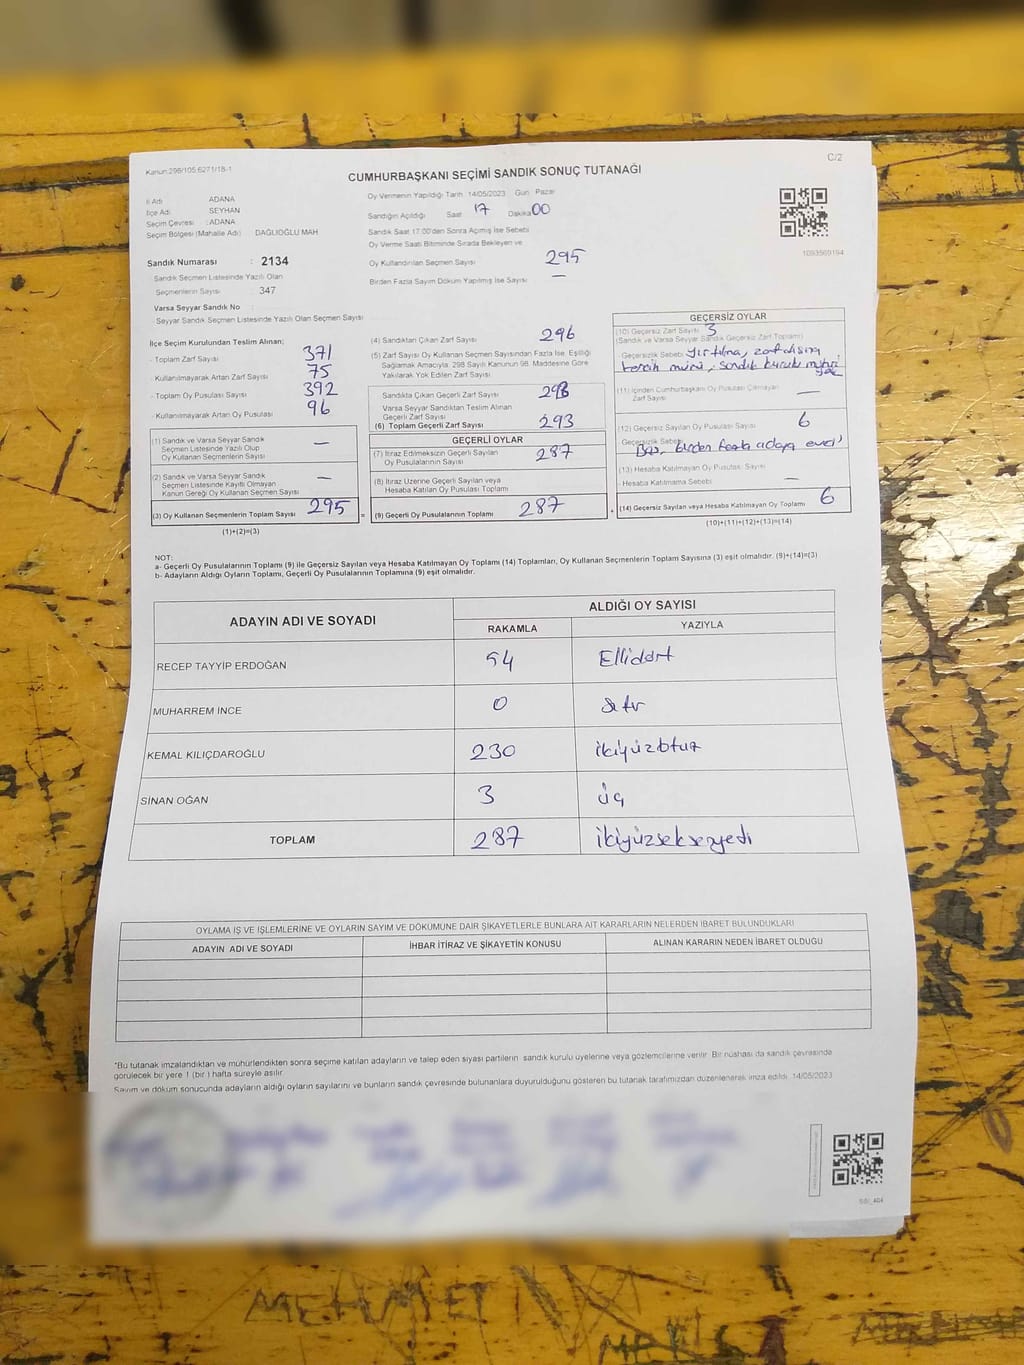 Kanun:298/105,6271/18-1
C/2
CUMHURBAŞKANI SEÇİMİ SANDIK SONUÇ TUTANAĞI
İl Adı ADANA
İlçe Adı SEYHAN
Seçim Çevresi : ADANA
Seçim Bölgesi (Mahalle Adı) DAĞLIOĞLU MAH
Sandık Numarası : 2134
Sandık Seçmen Listesinde Yazılı Olan
Seçmenlerin Sayısı : 347
Varsa Seyyar Sandık No
Seyyar Sandık Seçmen Listesinde Yazılı Olan Seçmen Sayısı
Oy Vermenin Yapıldığı Tarih 14/05/2023 Gün Pazar
Sandığın Açıldığı Saat 17 Dakika 00
Sandık Saat 17:00'den Sonra Açılmış İse Sebebi
Oy Verme Saati Bitiminde Sırada Bekleyen ve
Oy Kullandırılan Seçmen Sayısı 295
Birden Fazla Sayım Döküm Yapılmış İse Sayısı —
1093569194
İlçe Seçim Kurulundan Teslim Alınan;
- Toplam Zarf Sayısı 371
- Kullanılmayarak Artan Zarf Sayısı 75
- Toplam Oy Pusulası Sayısı 392
- Kullanılmayarak Artan Oy Pusulası 96
(1) Sandık ve Varsa Seyyar Sandık
Seçmen Listesinde Yazılı Olup
Oy Kullanan Seçmenlerin Sayısı —
(2) Sandık ve Varsa Seyyar Sandık
Seçmen Listesinde Kayıtlı Olmayan
Kanun Gereği Oy Kullanan Seçmen Sayısı —
(3) Oy Kullanan Seçmenlerin Toplam Sayısı 295
(1)+(2)=(3)
(4) Sandıktan Çıkan Zarf Sayısı 296
(5) Zarf Sayısı Oy Kullanan Seçmen Sayısından Fazla İse, Eşitliği
Sağlamak Amacıyla, 298 Sayılı Kanunun 98. Maddesine Göre
Yakılarak Yok Edilen Zarf Sayısı
Sandıkta Çıkan Geçerli Zarf Sayısı
Varsa Seyyar Sandıktan Teslim Alınan
Geçerli Zarf Sayısı
(6) Toplam Geçerli Zarf Sayısı 293
GEÇERLİ OYLAR
(7) İtiraz Edilmeksizin Geçerli Sayılan
Oy Pusulasının Sayısı 287
(8) İtiraz Üzerine Geçerli Sayılan veya
Hesaba Katılan Oy Pusulası Toplamı —
= (9) Geçerli Oy Pusulalarının Toplamı 287
GEÇERSİZ OYLAR
(10) Geçersiz Zarf Sayısı 3
(Sandık ve Varsa Seyyar Sandık Geçersiz Zarf Toplamı)
- Geçersizlik Sebebi Yırtılma, zarf dışına
tercih mührü, sandık kurulu mührü
yok
(11) İçinden Cumhurbaşkanı Oy Pusulası Çıkmayan
Zarf Sayısı —
(12) Geçersiz Sayılan Oy Pusulası Sayısı 6
Geçersizlik Sebebi
Boş, birden fazla adaya evet
(13) Hesaba Katılmayan Oy Pusulası Sayısı
- Hesaba Katılmama Sebebi —
+ (14) Geçersiz Sayılan veya Hesaba Katılmayan Oy Toplamı 6
(10)+(11)+(12)+(13)=(14)
NOT:
a- Geçerli Oy Pusulalarının Toplamı (9) ile Geçersiz Sayılan veya Hesaba Katılmayan Oy Toplamı (14) Toplamları, Oy Kullanan Seçmenlerin Toplam Sayısına (3) eşit olmalıdır. (9)+(14)=(3)
b- Adayların Aldığı Oyların Toplamı, Geçerli Oy Pusulalarının Toplamına (9) eşit olmalıdır.
ADAYIN ADI VE SOYADI
ALDIĞI OY SAYISI
RAKAMLA YAZIYLA
RECEP TAYYİP ERDOĞAN 54 Ellidört
MUHARREM İNCE 0 sıfır
KEMAL KILIÇDAROĞLU 230 ikiyüzotuz
SİNAN OĞAN 3 üç
TOPLAM 287 ikiyüzseksenyedi
OYLAMA İŞ VE İŞLEMLERİNE VE OYLARIN SAYIM VE DÖKÜMÜNE DAİR ŞİKAYETLERLE BUNLARA AİT KARARLARIN NELERDEN İBARET BULUNDUKLARI
ADAYIN ADI VE SOYADI İHBAR İTİRAZ VE ŞİKAYETİN KONUSU ALINAN KARARIN NEDEN İBARET OLDUĞU
*Bu tutanak imzalandıktan ve mühürlendikten sonra seçime katılan adayların ve talep eden siyasi partilerin sandık kurulu üyelerine veya gözlemcilerine verilir. Bir nüshası da sandık çevresinde
görülecek bir yere 1 (bir) hafta süreyle asılır.
Sayım ve döküm sonucunda adayların aldığı oyların sayılarını ve bunların sandık çevresinde bulunanlara duyurulduğunu gösteren bu tutanak tarafımızdan düzenlenerek imza edildi. 14/05/2023
MEHMET